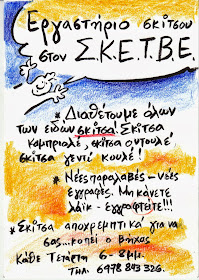 Εργαστήριο σκίτσου
στον Σ.Κ.Ε.Τ.Β.Ε.
* Διαθέτουμε όλων
των ειδών σκίτσα! Σκίτσα
καμπριολέ, σκίτσα ντουλέ
σκίτσα γεντί κουλέ!
* Νέες παραλαβές - νέες
εγγραφές. Μη κάνετε
λάικ - εγγραφτείτε!!!
* Σκίτσα αποχρεμπτικά για να
σας... κοπεί ο βήχας
Κάθε Τετάρτη 6-8μμ.
τηλ. 6978 893 326.